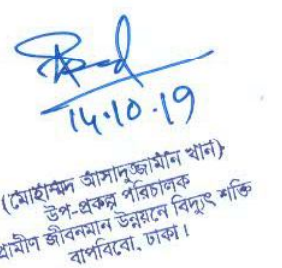 14.10.19
(মোহাম্মদ আসাদুজ্জামান খান)
উপ-প্রকল্প পরিচালক
গ্রামীণ জীবনমান উন্নয়নে বিদ্যুৎ শক্তি
বাপবিবো, ঢাকা।